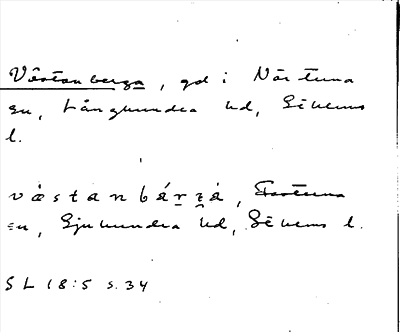 Västanberga, gd i Närtuna
sn, Långhundra hd, Sthlms
l.
västanbárgá, Fasterna
sn, Sjuhundra hd, Sthlms l.
SL 18:5 s. 34